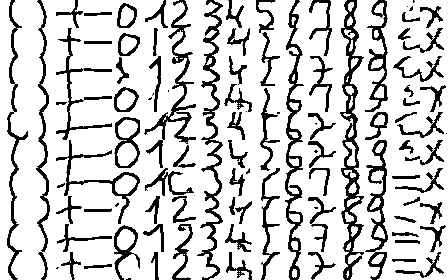 ( ) + - 0 1 2 3 4 5 6 7 8 9 = x
( ) + - 0 1 2 3 4 5 6 7 8 9 = x
( ) + - 1 2 3 4 5 6 7 8 9 = x
( ) + - 0 1 2 3 4 5 6 7 8 9 = x
( ) + - 0 1 2 3 4 5 6 7 8 9 = x
( ) + - 0 1 2 3 4 5 6 7 8 9 = x
( ) + - 0 1 2 3 4 5 6 7 8 9 = x
( ) + - 1 2 3 4 5 6 7 8 9 = x
( ) + - 0 1 2 3 4 5 6 7 8 9 = x
( ) + - 0 1 2 3 4 5 6 7 8 9 = x